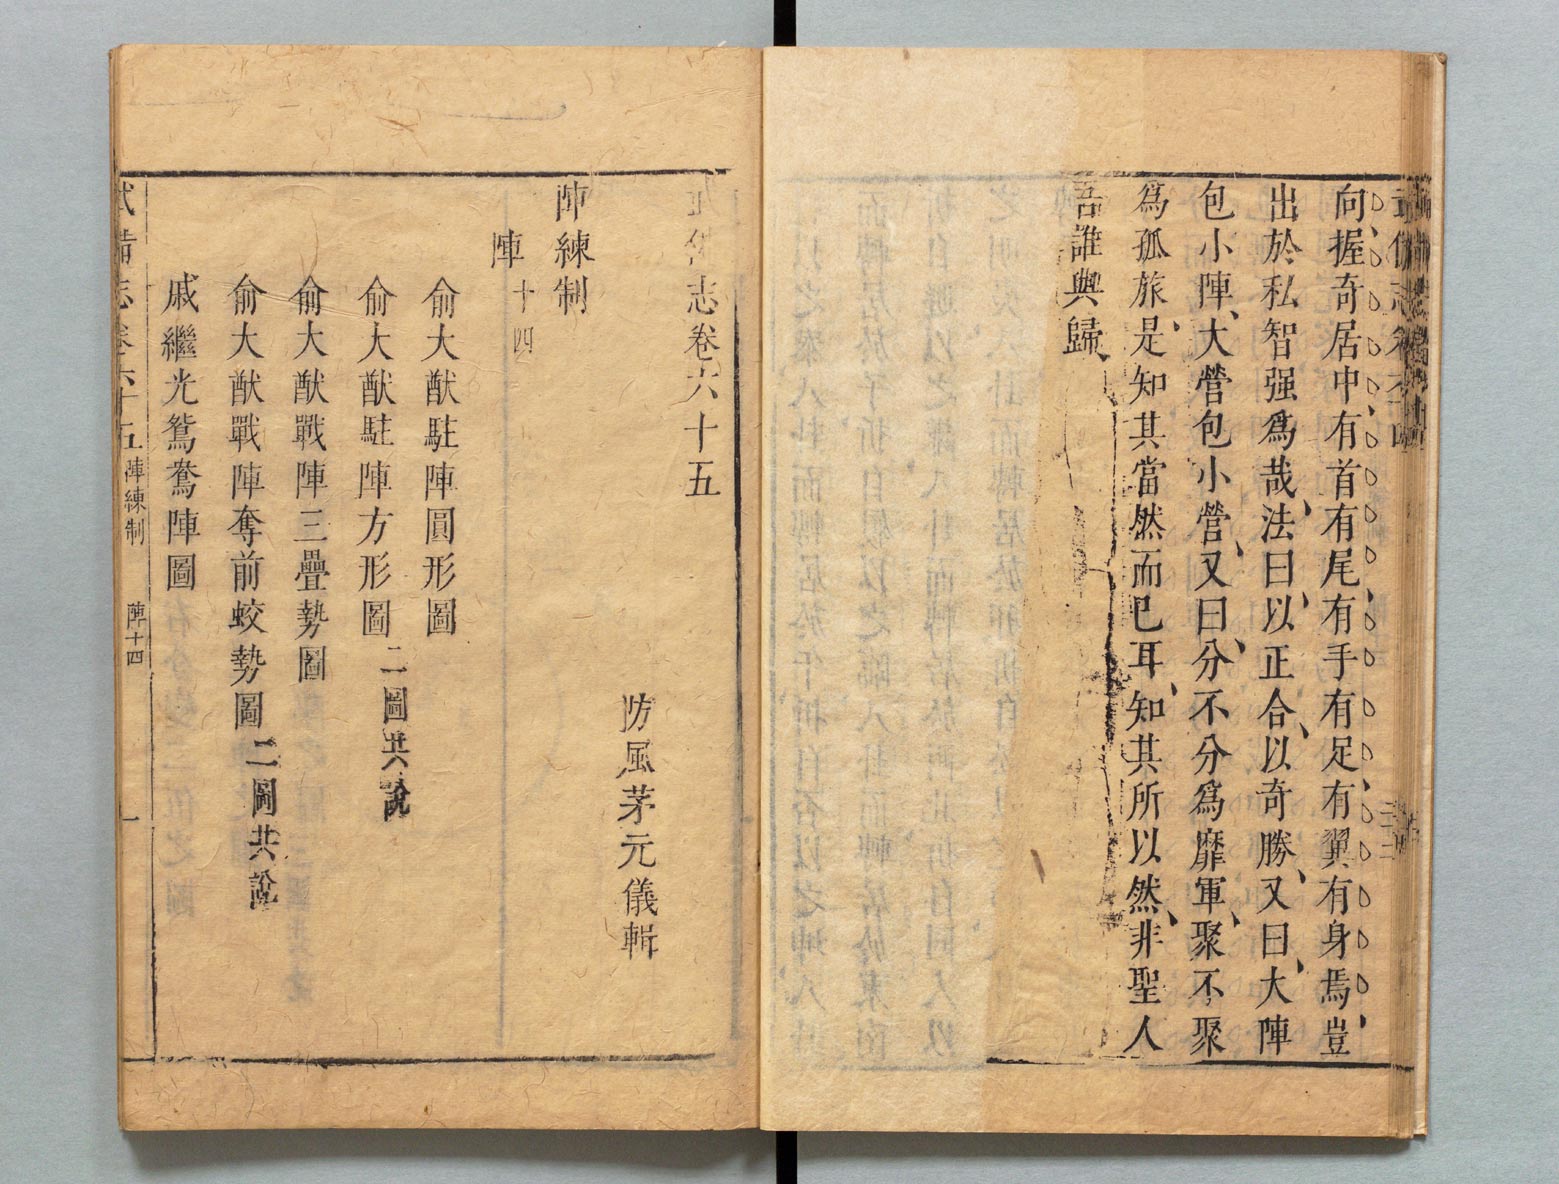 向握奇居中有首有尾有手有足有翼有身焉豈
出於私智强爲哉法曰以正合以奇勝又曰大陣
包小陣大營包小營又曰分不分爲靡軍聚不聚
爲孤旅是知其當然而已耳知其所以然非聖人
吾誰與歸
志卷六十五
防風茅元儀輯
陣練制
陣十四
俞大猷駐陣圓形圖
俞大猷駐陣方形圖二圖共說
俞大猷戰陣三疊勢圖
俞大猷戰陣奪前蛟勢圖二圖共說
戚繼光鴛鴦陣圖
武備志卷六十五 陣練制 陣十四 一